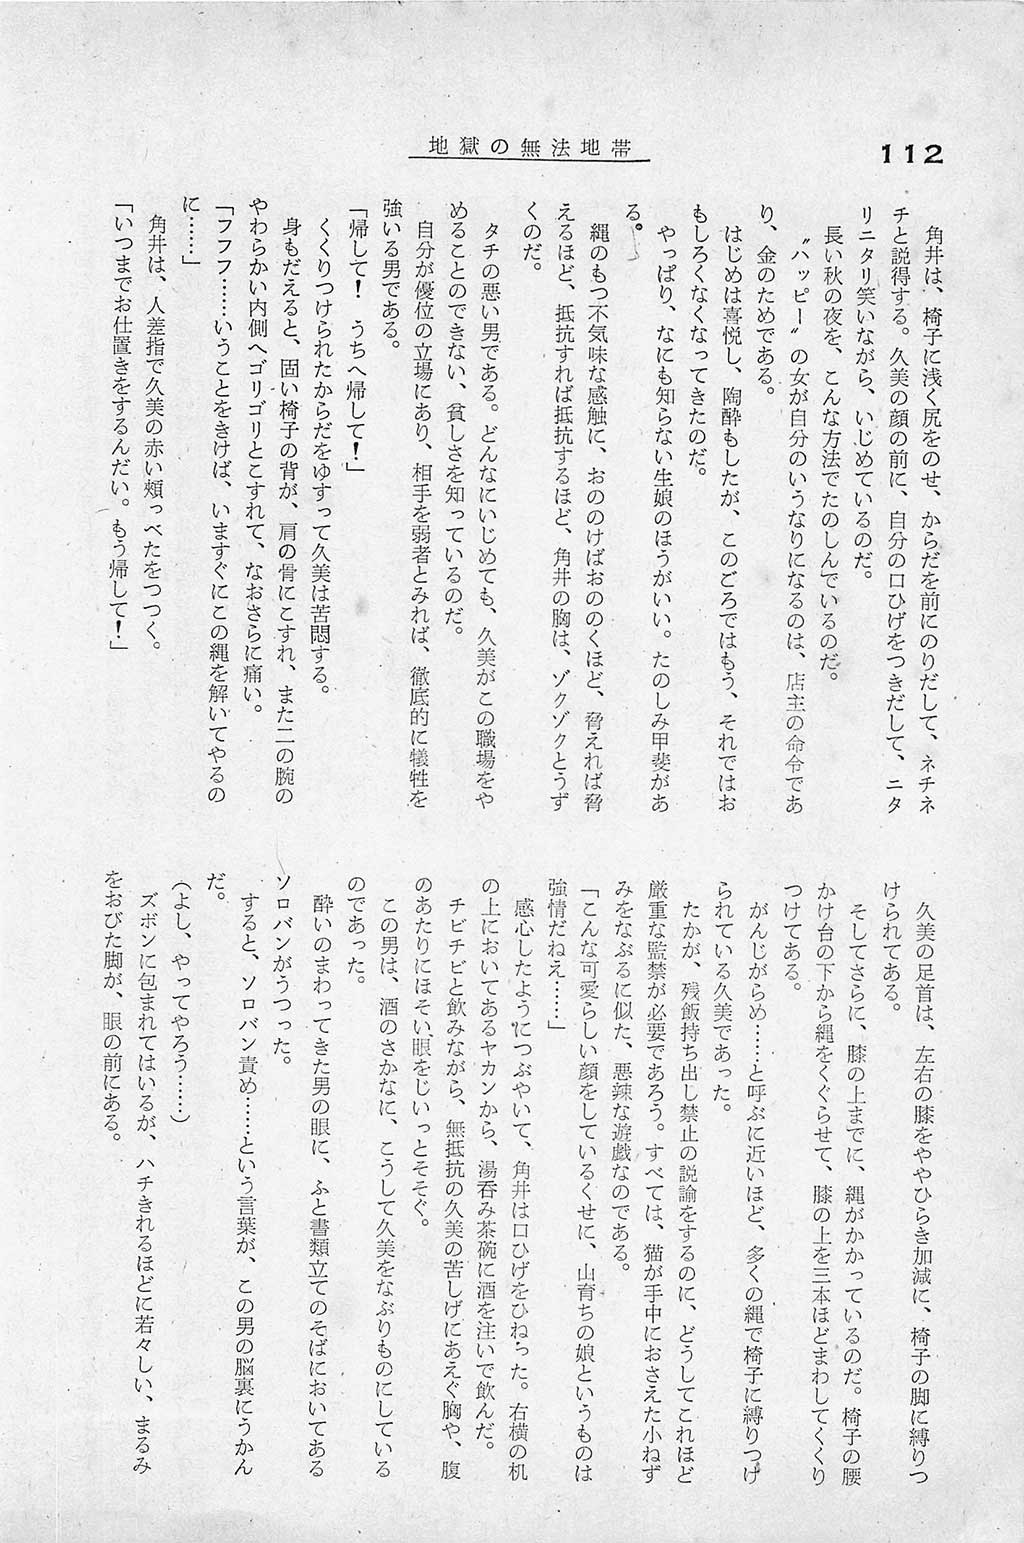 地獄の無法地帯
112
角井は、椅子に浅く尻をのせ、からだを前にのりだして、ネチネ
チと説得する。久美の顔の前に、自分の口ひげをつきだして、ニタ
リニタリ笑いながら、いじめているのだ。
長い秋の夜を、こんな方法でたのしんでいるのだ。
〝ハッピー〟の女が自分のいうなりになるのは、店主の命令であ
り、金のためである。
はじめは喜悦し、陶酔もしたが、このごろではもう、それではお
もしろくなくなってきたのだ。
やっぱり、なにも知らない生娘のほうがいい。たのしみ甲斐があ
る。
縄のもつ不気味な感触に、おののけばおののくほど、脅えれば脅
えるほど、抵抗すれば抵抗するほど、角井の胸は、ゾクゾクとうず
くのだ。
タチの悪い男である。どんなにいじめても、久美がこの職場をや
めることのできない、貧しさを知っているのだ。
自分が優位の立場にあり、相手を弱者とみれば、徹底的に犠牲を
強いる男である。
「帰して！　うちへ帰して！」
くくりつけられたからだをゆすって久美は苦悶する。
身もだえると、固い椅子の背が、肩の骨にこすれ、また二の腕の
やわらかい内側へゴリゴリとこすれて、なおさらに痛い。
「フフフ……いうことをきけば、いますぐにこの縄を解いてやるの
に……」
角井は、人差指で久美の赤い頰っぺたをつつく。
「いつまでお仕置きをするんだい。もう帰して！」
久美の足首は、左右の膝をややひらき加減に、椅子の脚に縛りつ
けられてある。
そしてさらに、膝の上までに、縄がかかっているのだ。椅子の腰
かけ台の下から縄をくぐらせて、膝の上を三本ほどまわしてくくり
つけてある。
がんじがらめ……と呼ぶに近いほど、多くの縄で椅子に縛りつけ
られている久美であった。
たかが、残飯持ち出し禁止の説諭をするのに、どうしてこれほど
厳重な監禁が必要であろう。すべては、猫が手中におさえた小ねず
みをなぶるに似た、悪辣な遊戯なのである。
「こんな可愛らしい顔をしているくせに、山育ちの娘というものは
強情だねえ……」
感心したようにつぶやいて、角井は口ひげをひねった。右横の机
の上においてあるヤカンから、湯呑み茶碗に酒を注いで飲んだ。
チビチビと飲みながら、無抵抗の久美の苦しげにあえぐ胸や、腹
のあたりにほそい眼をじいっとそそぐ。
この男は、酒のさかなに、こうして久美をなぶりものにしている
のであった。
酔いのまわってきた男の眼に、ふと書類立てのそばにおいてある
ソロバンがうつった。
すると、ソロバン責め……という言葉が、この男の脳裏にうかん
だ。
（よし、やってやろう……）
ズボンに包まれてはいるが、ハチきれるほどに若々しい、まるみ
をおびた脚が、眼の前にある。